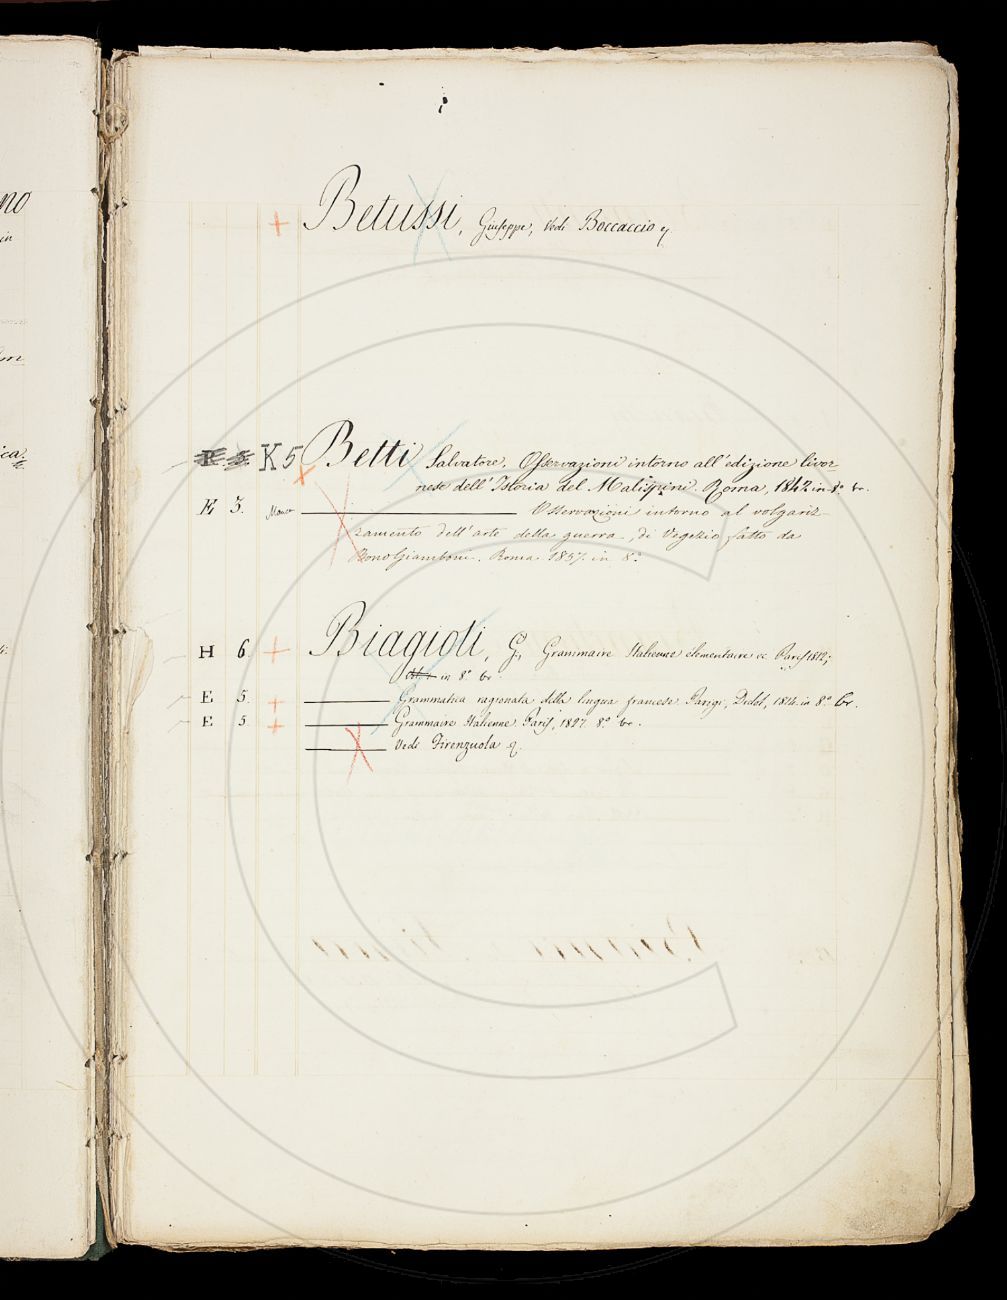 no
in
ica
Betussi, Giuseppe, Vedi Boccaccio
K 5 Betti Salvatore, Osservazioni intorno all'edizione livor=
nese dell'Istoria del Malispini. Roma, 1842 in 8.° br.
E 3. Manca Osservazioni intorno al volgariz-
zamento dell'arte della guerra, di Vegezio fatto da
Bono Giamboni. Roma 1837. in 8.°
H 6. Biagioli, G., Grammaire Italienne élementaire &c Paris 1812;
in 8.° br
E 5. Grammatica ragionata della lingua francese. Parigi, Didot, 1814. in 8.° br.
E 5. Grammaire Italienne. Paris, 1827. 8.° br.
Vedi Firenzuola